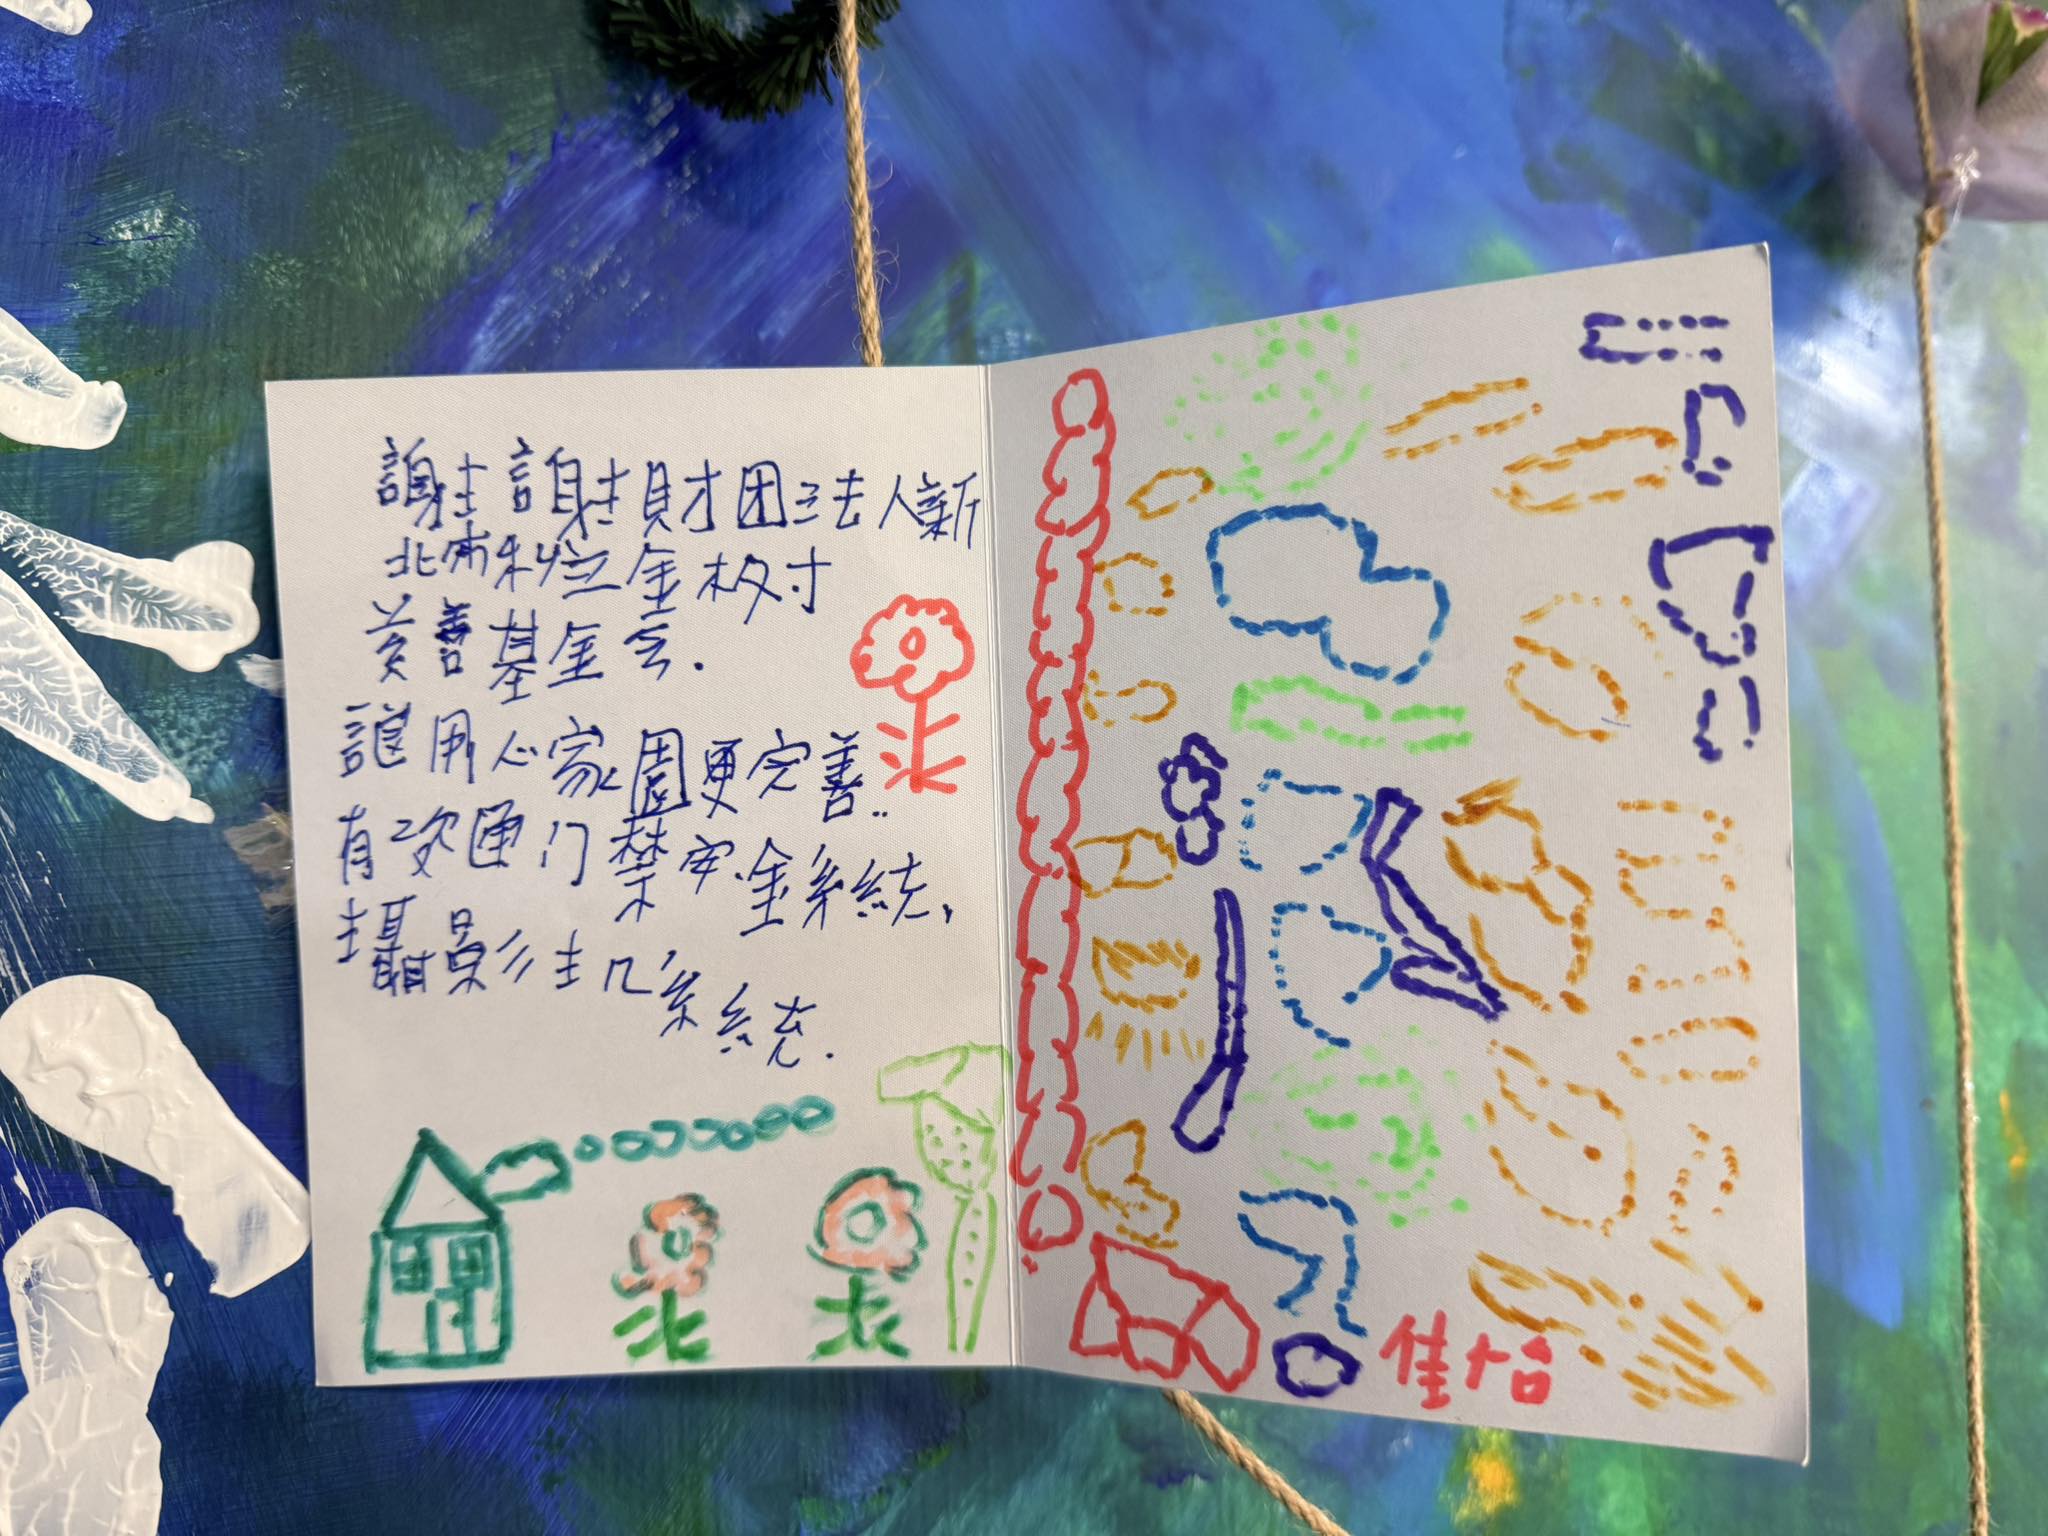 謝謝財团法人新
北市私立金板寸
慈善基金会.
讓用心家園更完善..
有次通门禁安全系統,
攝影主几系統.
佳怡